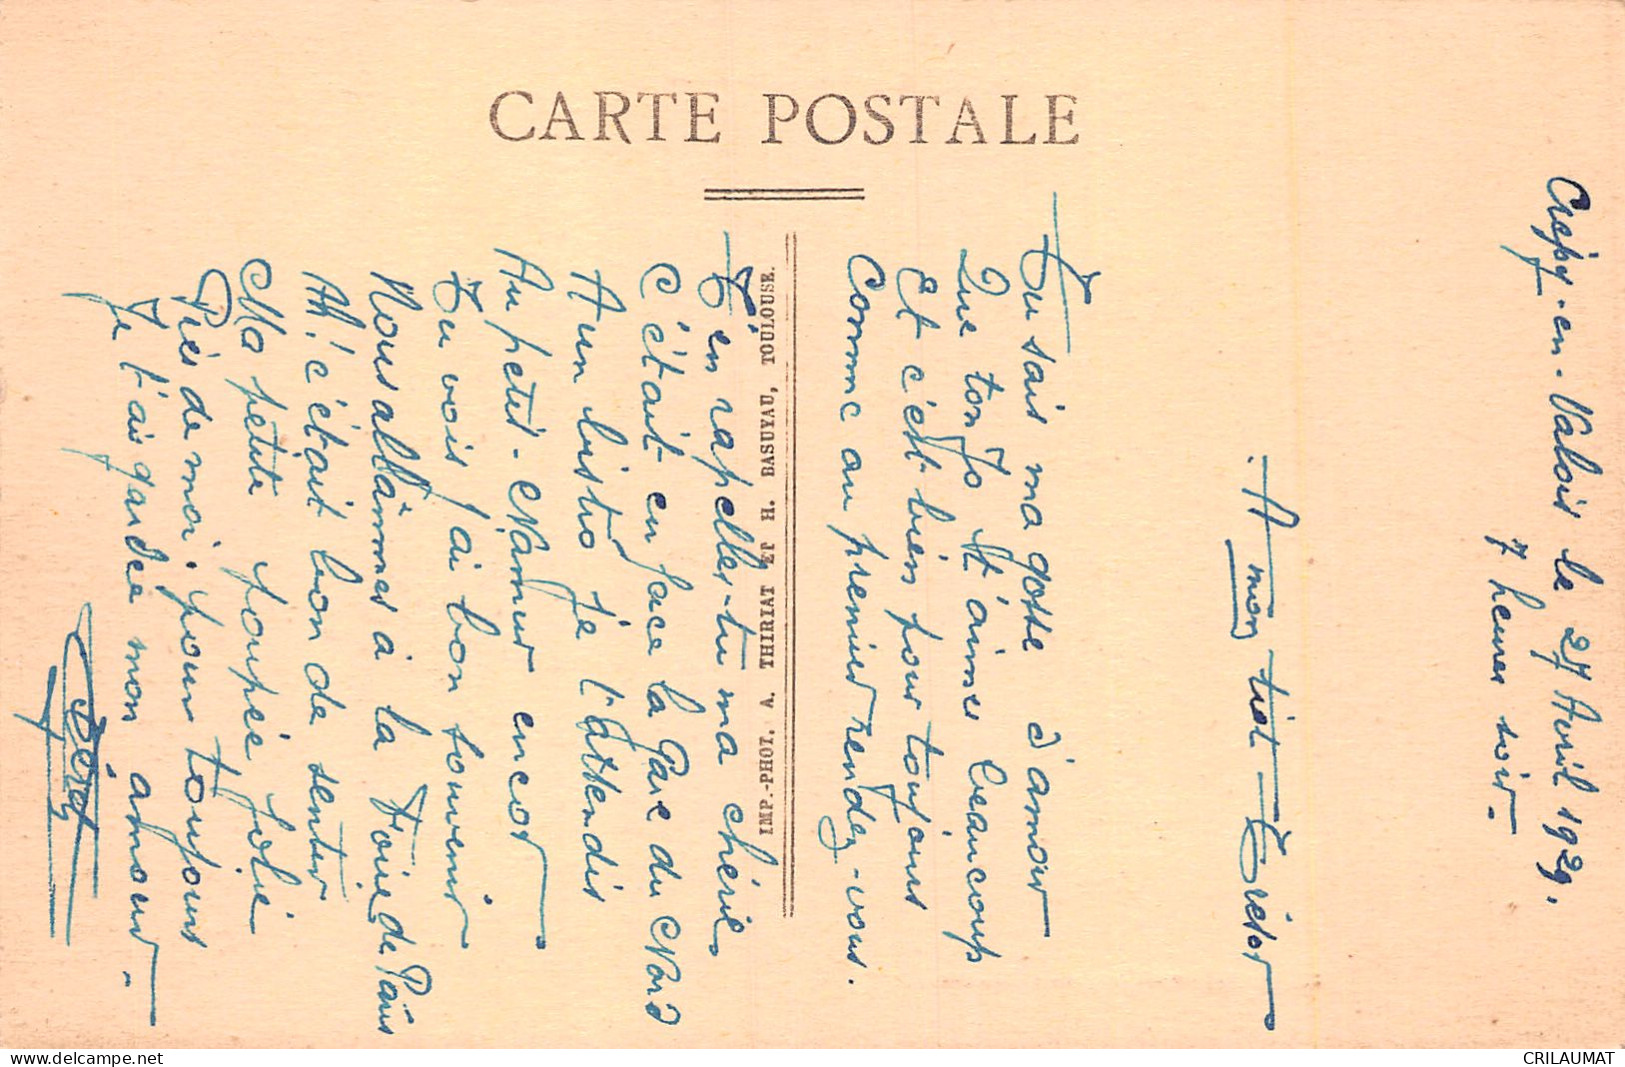 CARTE POSTALE
IMP.-PHOT. A. THIRIAT ET H. BASUYAU, TOULOUSE.
Crépy-en-Valois le 27 Avril 1929.
7 heures soir.
A mon tiot Trésor
Tu sais ma gosse d'amour
Que ton Jo t'aimes beaucoup
Et c'est bien pour toujours
Comme au premier rendez-vous.
T'en rapelles-tu ma chérie
C'était en face la Gare du Nord
A un bistro je t'attendis
Au petit-Namur encor
Tu vois j'ai bon souvenir
Nous allâmes à la Foire de Paris
Ah! c'était bon de sentir
Ma petite poupée jolie
Près de moi; pour toujours
Je t'ais gardée mon amour.
delcampe.net
CRILAUMAT